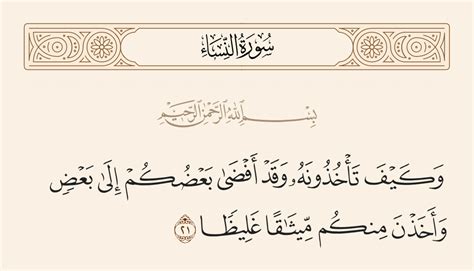 سُورَةُ النِّسَاءِ
بِسْمِ اللَّهِ الرَّحْمَٰنِ الرَّحِيمِ
وَكَيْفَ تَأْخُذُونَهُۥ وَقَدْ أَفْضَىٰ بَعْضُكُمْ إِلَىٰ بَعْضٍ
وَأَخَذْنَ مِنكُم مِّيثَٰقًا غَلِيظًا ٢١